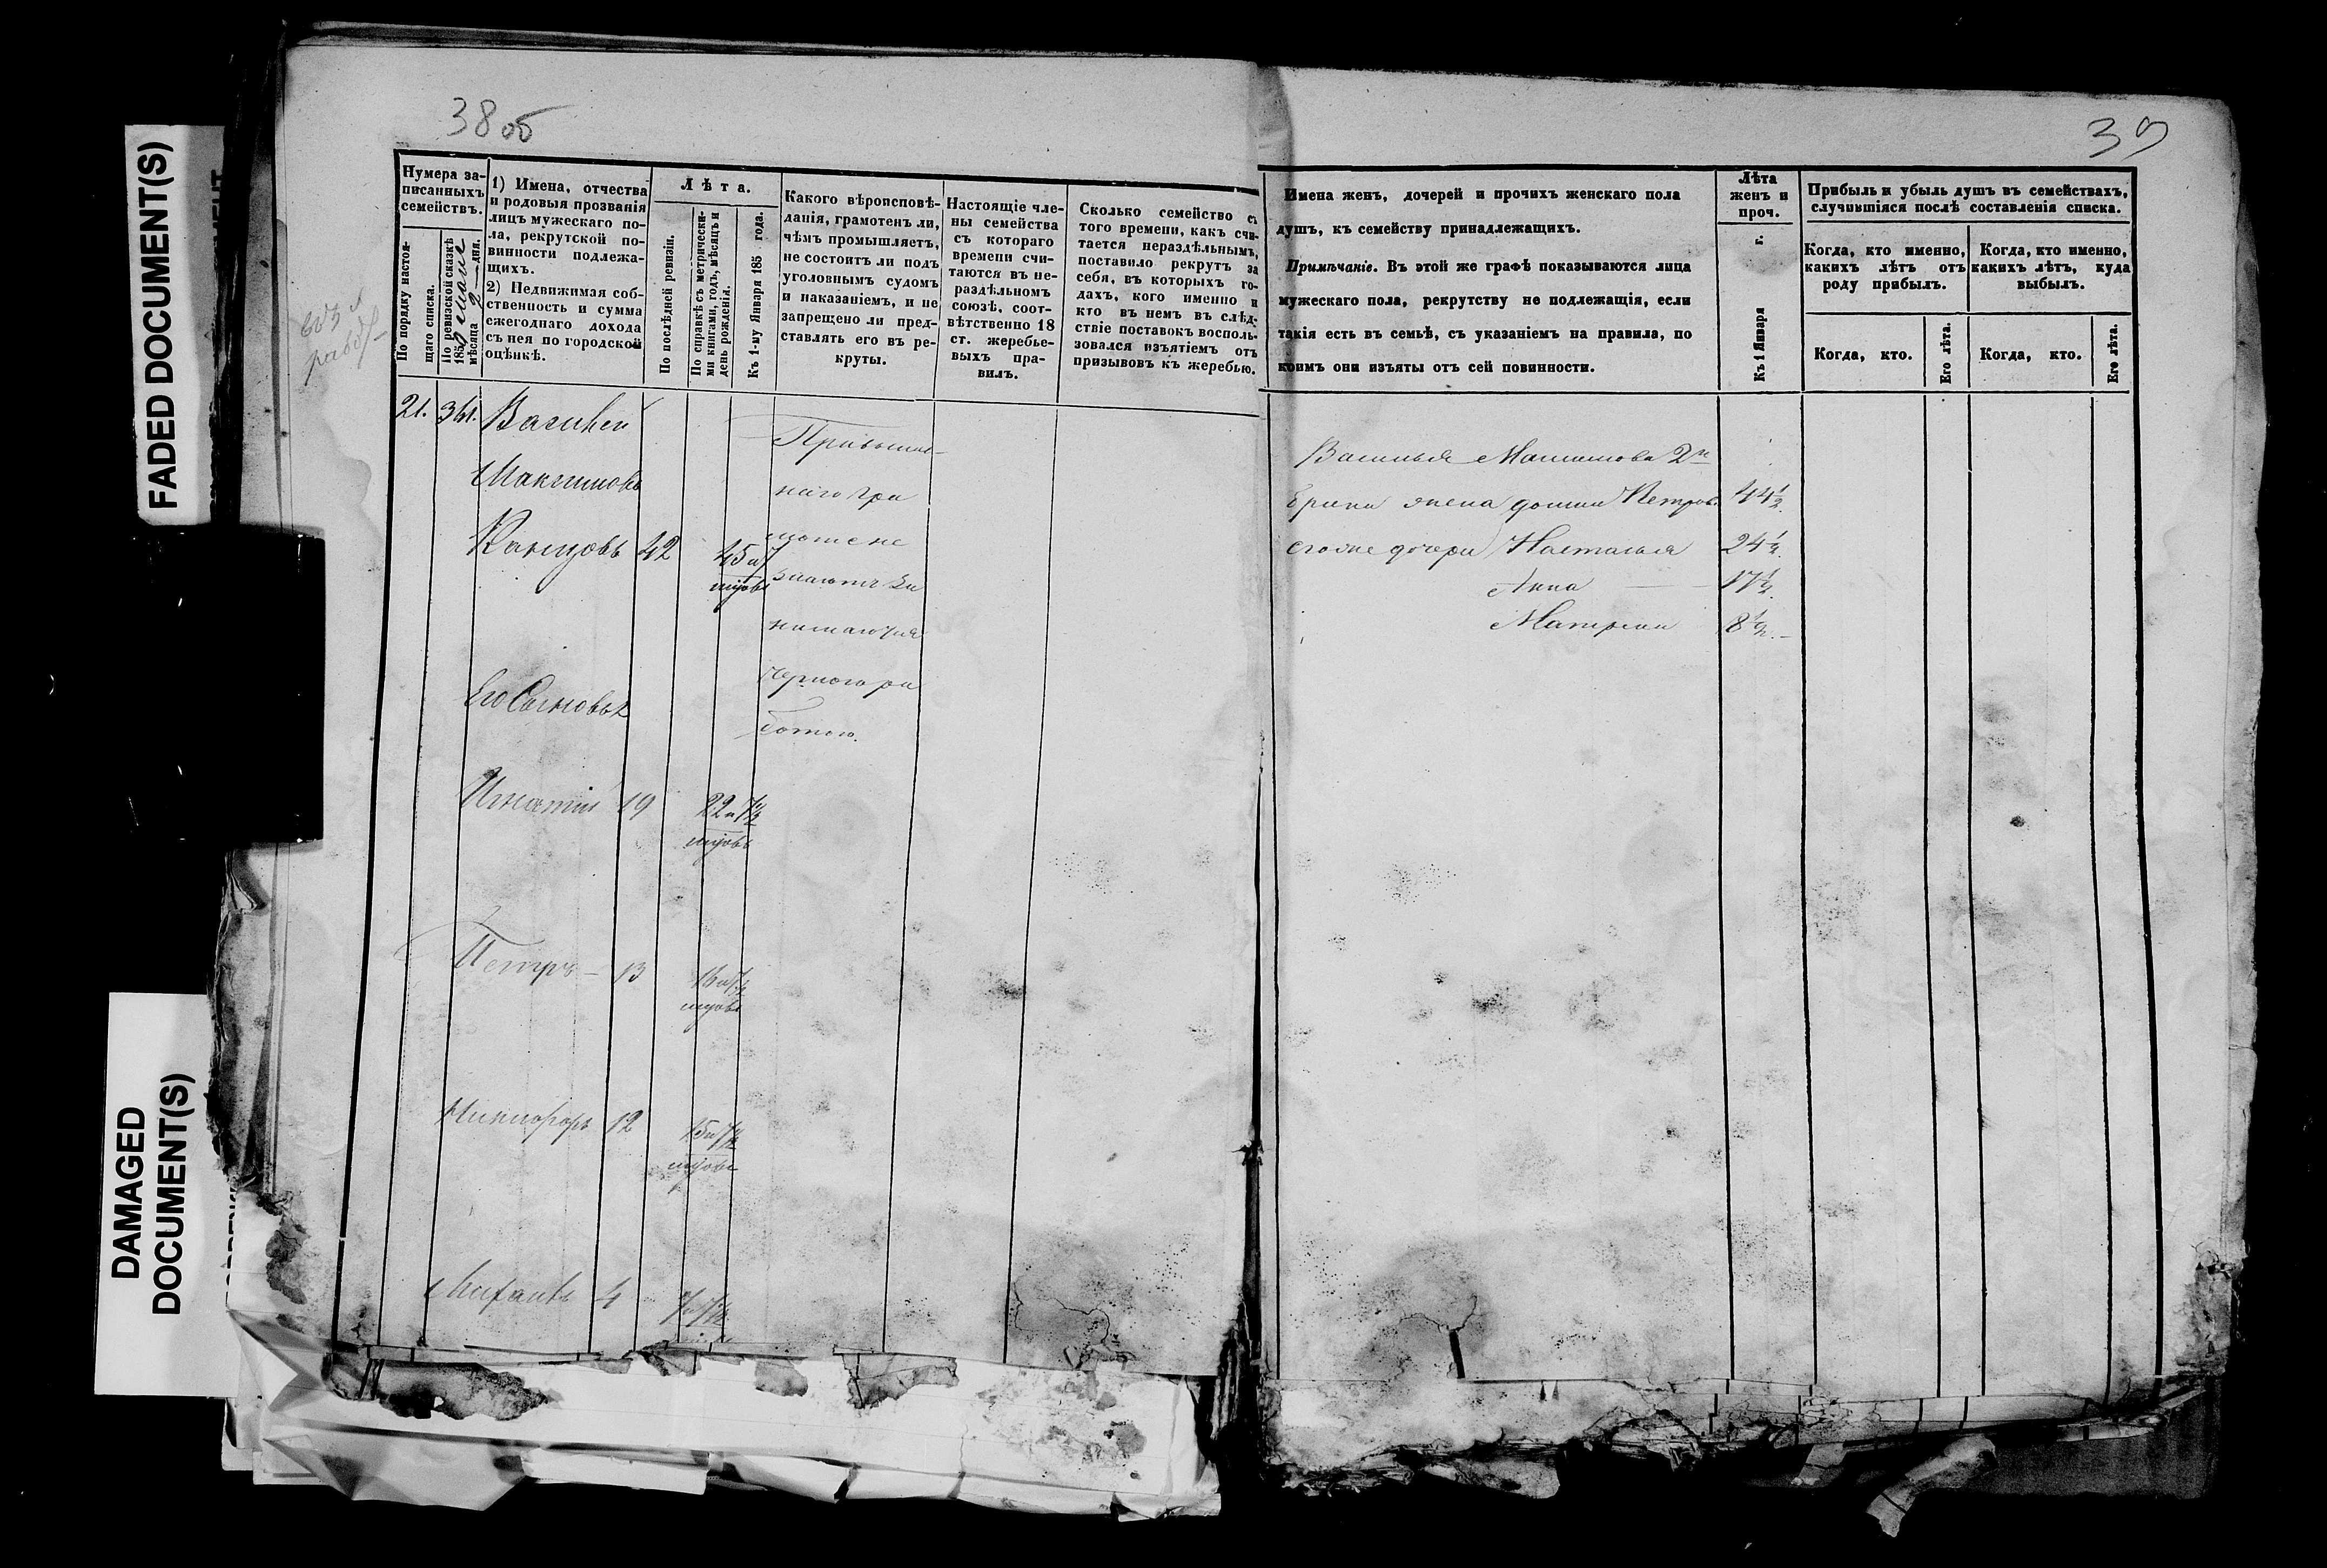 FADED DOCUMENT(S)
DAMAGED
DOCUMENT(S)
38 об
Нумера за-
писанныхъ
семействъ.
По порядку настоя-
щаго списка.
По ревизской сказкѣ
185
мѣсяца 2 дня.
1) Имена, отчества
и родовыя прозванія
лицъ мужескаго по-
ла, рекрутской по-
винности подлежа-
щихъ.
2) Недвижимая соб-
ственность и сумма
ежегоднаго дохода
съ нея по городской
оцѣнкѣ.
Лѣта.
По послѣдней ревизіи.
По справкѣ съ метрически-
ми книгами, годъ, мѣсяцъ и
день рожденія.
Къ 1-му Января 185 года.
Какого вѣроисповѣ-
данія, грамотенъ ли,
чѣмъ промышляетъ,
не состоитъ ли подъ
уголовнымъ судомъ
и наказаніемъ, и не
запрещено ли пред-
ставлять его въ ре-
круты.
Настоящіе чле-
ны семейства
съ котораго
времени счи-
таются въ не-
раздѣльномъ
союзѣ, соот-
вѣтственно 18
ст. жеребье-
выхъ пра-
вилъ.
Сколько семейство съ
того времени, какъ счи-
тается нераздѣльнымъ,
поставило рекрутъ за
себя, въ которыхъ го-
дахъ, кого именно и
кто въ немъ въ слѣд-
ствіе поставокъ восполь-
зовался изъятіемъ отъ
призывовъ къ жеребью.
21. 361. Василей
Максимовъ
42 45 и 7
Его Сыновья
Игнатій 19 22 и 7/12
Петръ 13 16 и 7/12
Никифоръ 12 15 и 7/12
Михаилъ 4
39
Имена женъ, дочерей и прочихъ женскаго пола
душъ, къ семейству принадлежащихъ.
Примѣчаніе. Въ этой же графѣ показываются лица
мужескаго пола, рекрутству не подлежащія, если
такія есть въ семьѣ, съ указаніемъ на правила, по
коимъ они изъяты отъ сей повинности.
Лѣта
женъ и
проч.
Къ 1 Января г.
Прибыль и убыль душъ въ семействахъ,
случившіяся послѣ составленія списка.
Когда, кто именно,
какихъ лѣтъ отъ
роду прибылъ.
Когда, кто именно,
какихъ лѣтъ, куда
выбылъ.
Когда, кто.
Его лѣта.
Когда, кто.
Его лѣта.
Василья Максимова 2й
жена 44 1/2.
его же дочери Наталья 24 1/2.
Анна 17 1/2.
Матрена 8 1/2.